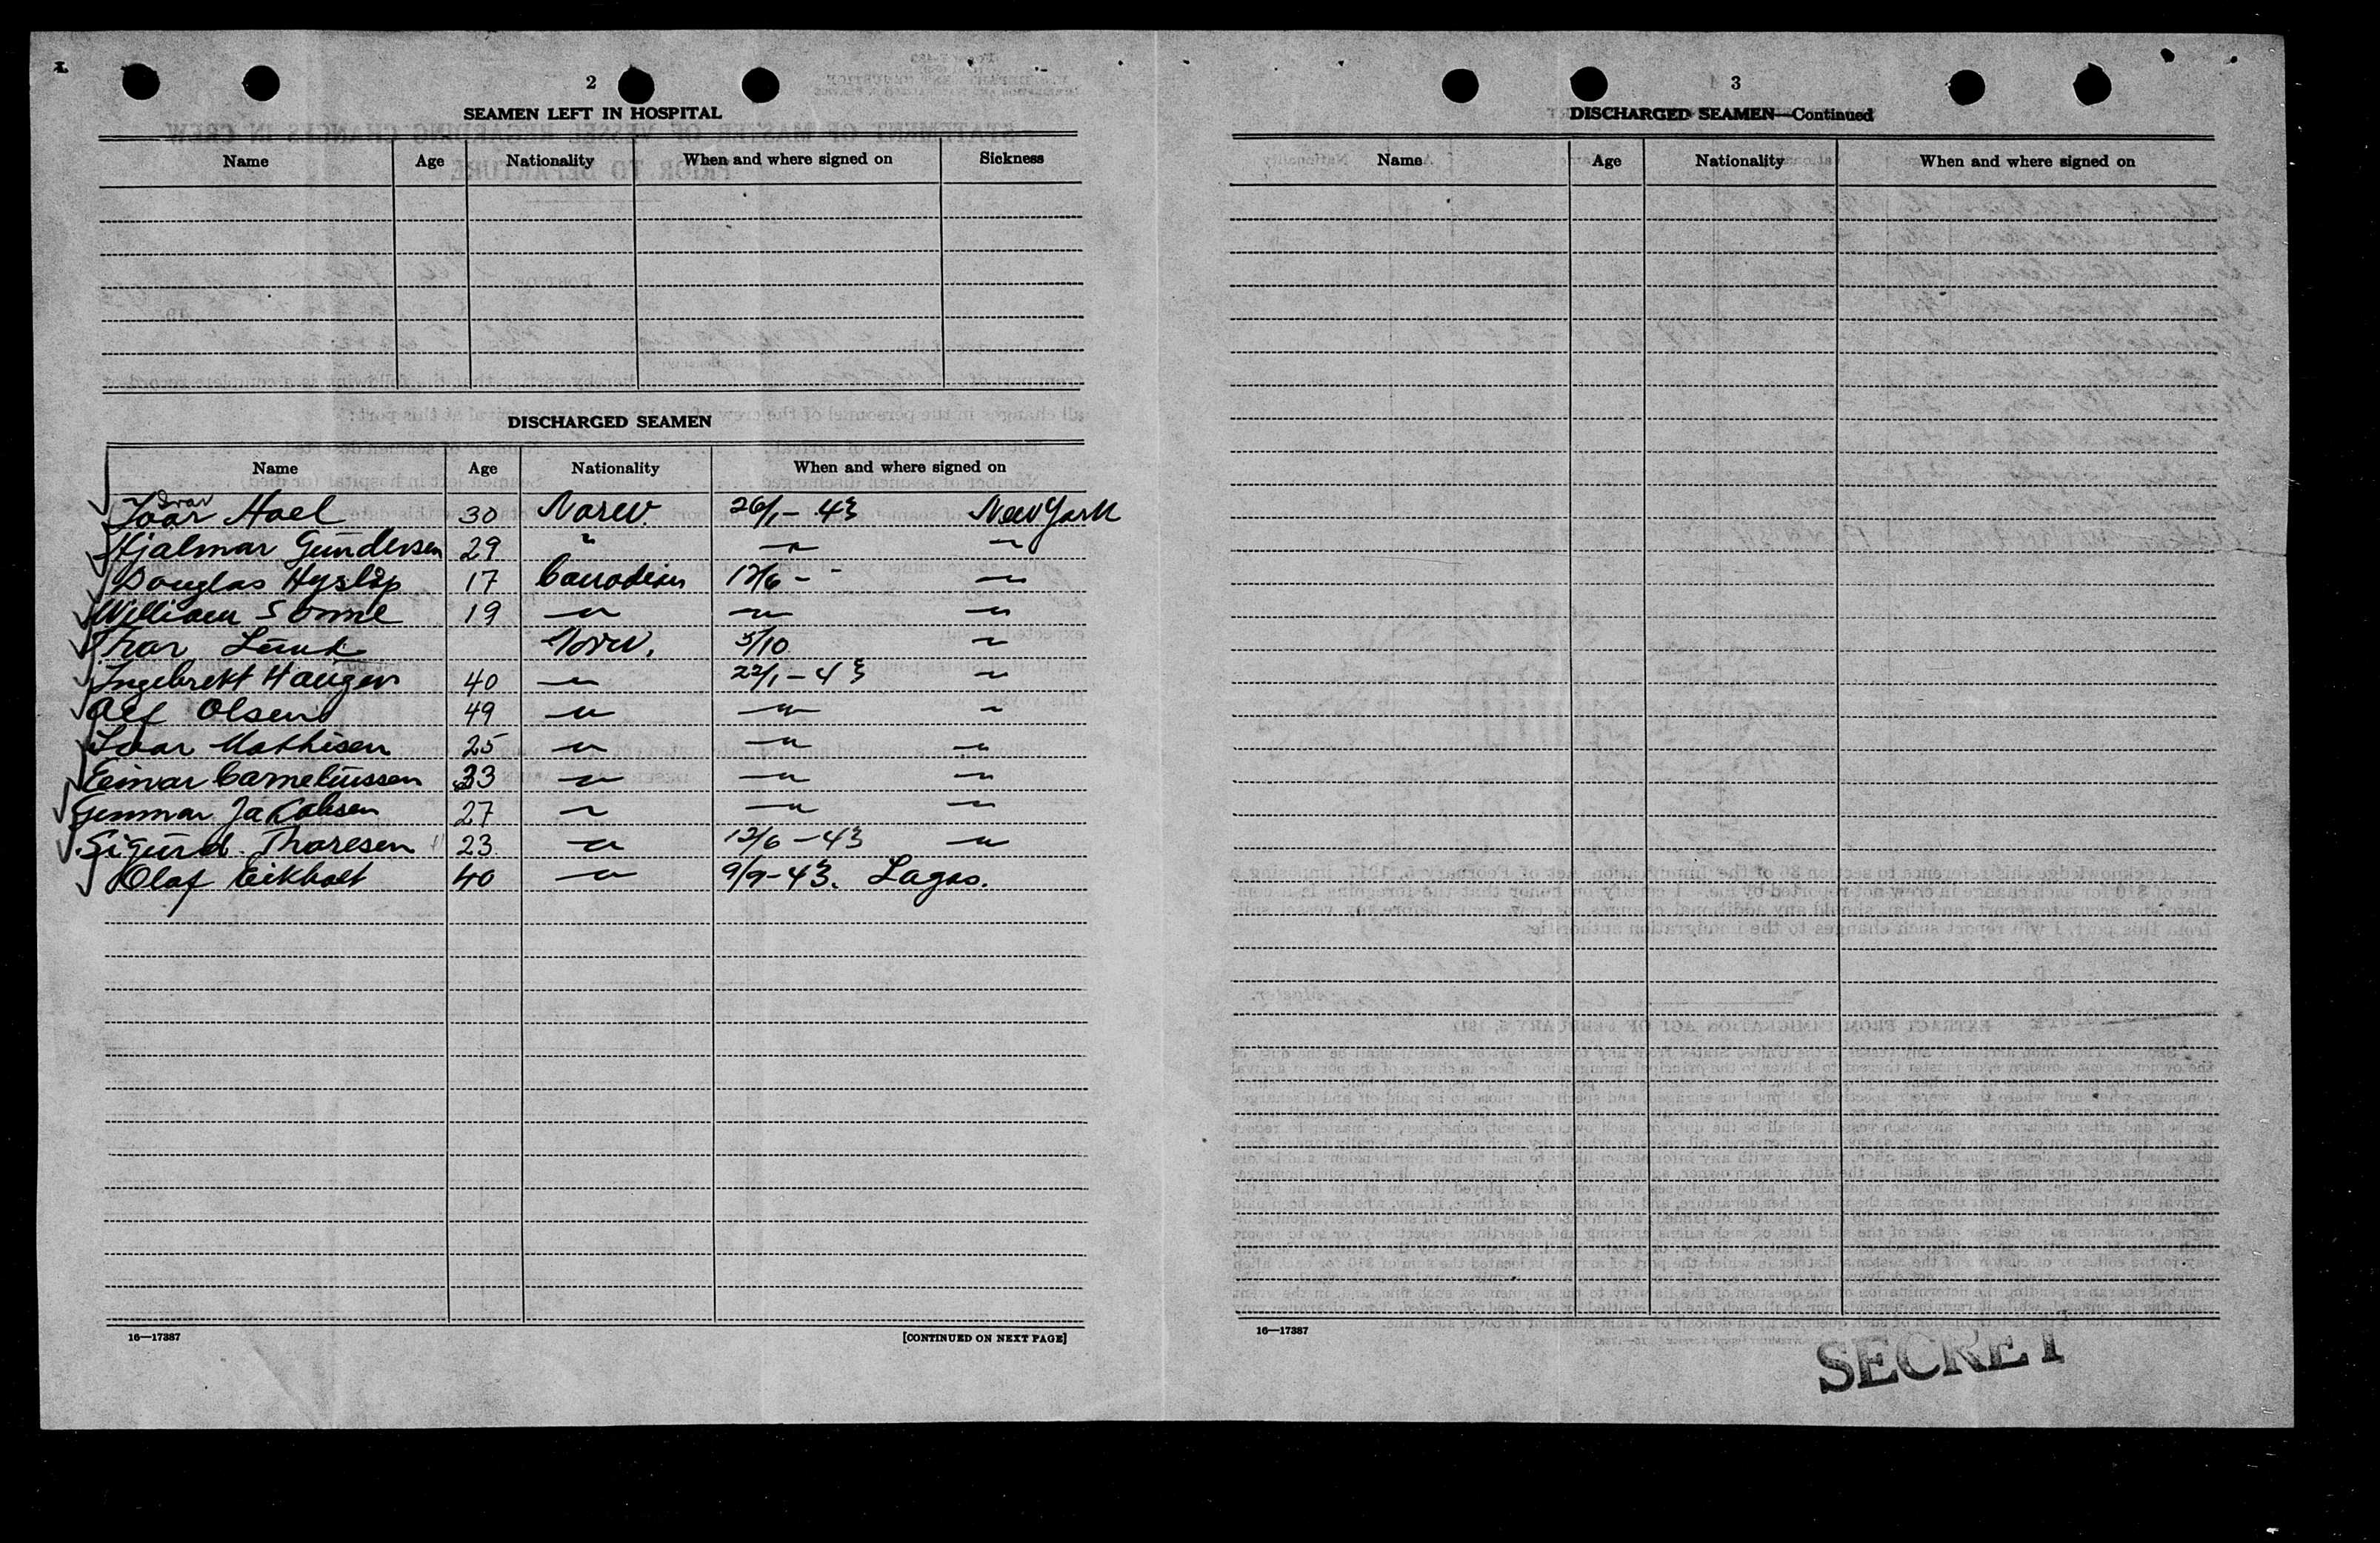 2
SEAMEN LEFT IN HOSPITAL
Name Age Nationality When and where signed on Sickness
DISCHARGED SEAMEN
Name Age Nationality When and where signed on
Ivar
Ivar Hoel 30 Norw. 26/1 - 43 New York
Hjalmar Gundersen 29 " — " — — " —
Douglas Hyslop 17 Canadian 12/6 - - — " —
William 19 — " — — " — — " —
Thor Norw. 5/10 — " —
Ingebrekt Haugen 40 — " — 22/1 - 43 — " —
Alf Olsen 49 — " — — " — — " —
Ivar Mathisen 25 — " — — " — — " —
Einar Corneliussen 33 — " — — " — — " —
Gunnar Jakobsen 27 — " — — " — — " —
Sigurd Thoresen 23 — " — 12/6 - 43 — " —
Olaf Eikholt 40 — " — 9/9 - 43. Lagos.
16—17387 [CONTINUED ON NEXT PAGE]
3
DISCHARGED SEAMEN—Continued
Name Age Nationality When and where signed on
16—17387
SECRET